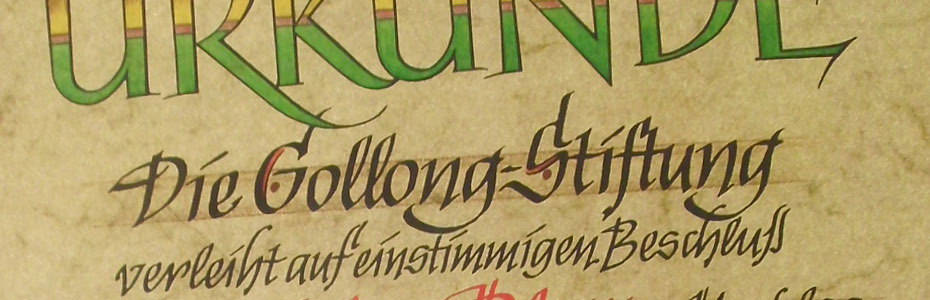 URKUNDE
Die Gollong-Stiftung
verleiht auf einstimmigen Beschluß